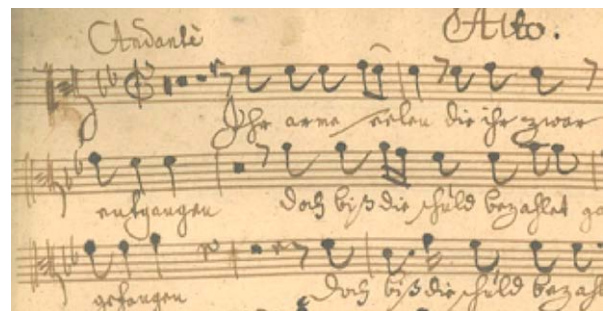 Andantè Alto.
Ihr arme seelen die ihr zwar
entgangen doch biß die schuld bezahlet ge
gefangen doch biß die schuld bezahl